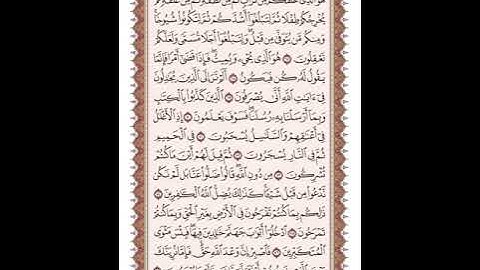 هُوَ ٱلَّذِى خَلَقَكُم مِّن تُرَابٍ ثُمَّ مِن نُّطْفَةٍ ثُمَّ مِنْ عَلَقَةٍ ثُمَّ
يُخْرِجُكُمْ طِفْلًا ثُمَّ لِتَبْلُغُوٓا۟ أَشُدَّكُمْ ثُمَّ لِتَكُونُوا۟ شُيُوخًا
وَمِنكُم مَّن يُتَوَفَّىٰ مِن قَبْلُ وَلِتَبْلُغُوٓا۟ أَجَلًا مُّسَمًّى وَلَعَلَّكُمْ
تَعْقِلُونَ هُوَ ٱلَّذِى يُحْىِۦ وَيُمِيتُ فَإِذَا قَضَىٰٓ أَمْرًا فَإِنَّمَا
يَقُولُ لَهُۥ كُن فَيَكُونُ أَلَمْ تَرَ إِلَى ٱلَّذِينَ يُجَٰدِلُونَ
فِىٓ ءَايَٰتِ ٱللَّهِ أَنَّىٰ يُصْرَفُونَ ٱلَّذِينَ كَذَّبُوا۟ بِٱلْكِتَٰبِ
وَبِمَآ أَرْسَلْنَا بِهِۦ رُسُلَنَا فَسَوْفَ يَعْلَمُونَ إِذِ ٱلْأَغْلَٰلُ
فِىٓ أَعْنَٰقِهِمْ وَٱلسَّلَٰسِلُ يُسْحَبُونَ فِى ٱلْحَمِيمِ
ثُمَّ فِى ٱلنَّارِ يُسْجَرُونَ ثُمَّ قِيلَ لَهُمْ أَيْنَ مَا كُنتُمْ
تُشْرِكُونَ مِن دُونِ ٱللَّهِ قَالُوا۟ ضَلُّوا۟ عَنَّا بَل لَّمْ نَكُن
نَّدْعُوا۟ مِن قَبْلُ شَيْـًٔا كَذَٰلِكَ يُضِلُّ ٱللَّهُ ٱلْكَٰفِرِينَ
ذَٰلِكُم بِمَا كُنتُمْ تَفْرَحُونَ فِى ٱلْأَرْضِ بِغَيْرِ ٱلْحَقِّ وَبِمَا كُنتُمْ
تَمْرَحُونَ ٱدْخُلُوٓا۟ أَبْوَٰبَ جَهَنَّمَ خَٰلِدِينَ فِيهَا فَبِئْسَ مَثْوَى
ٱلْمُتَكَبِّرِينَ فَٱصْبِرْ إِنَّ وَعْدَ ٱللَّهِ حَقٌّ فَإِمَّا نُرِيَنَّكَ